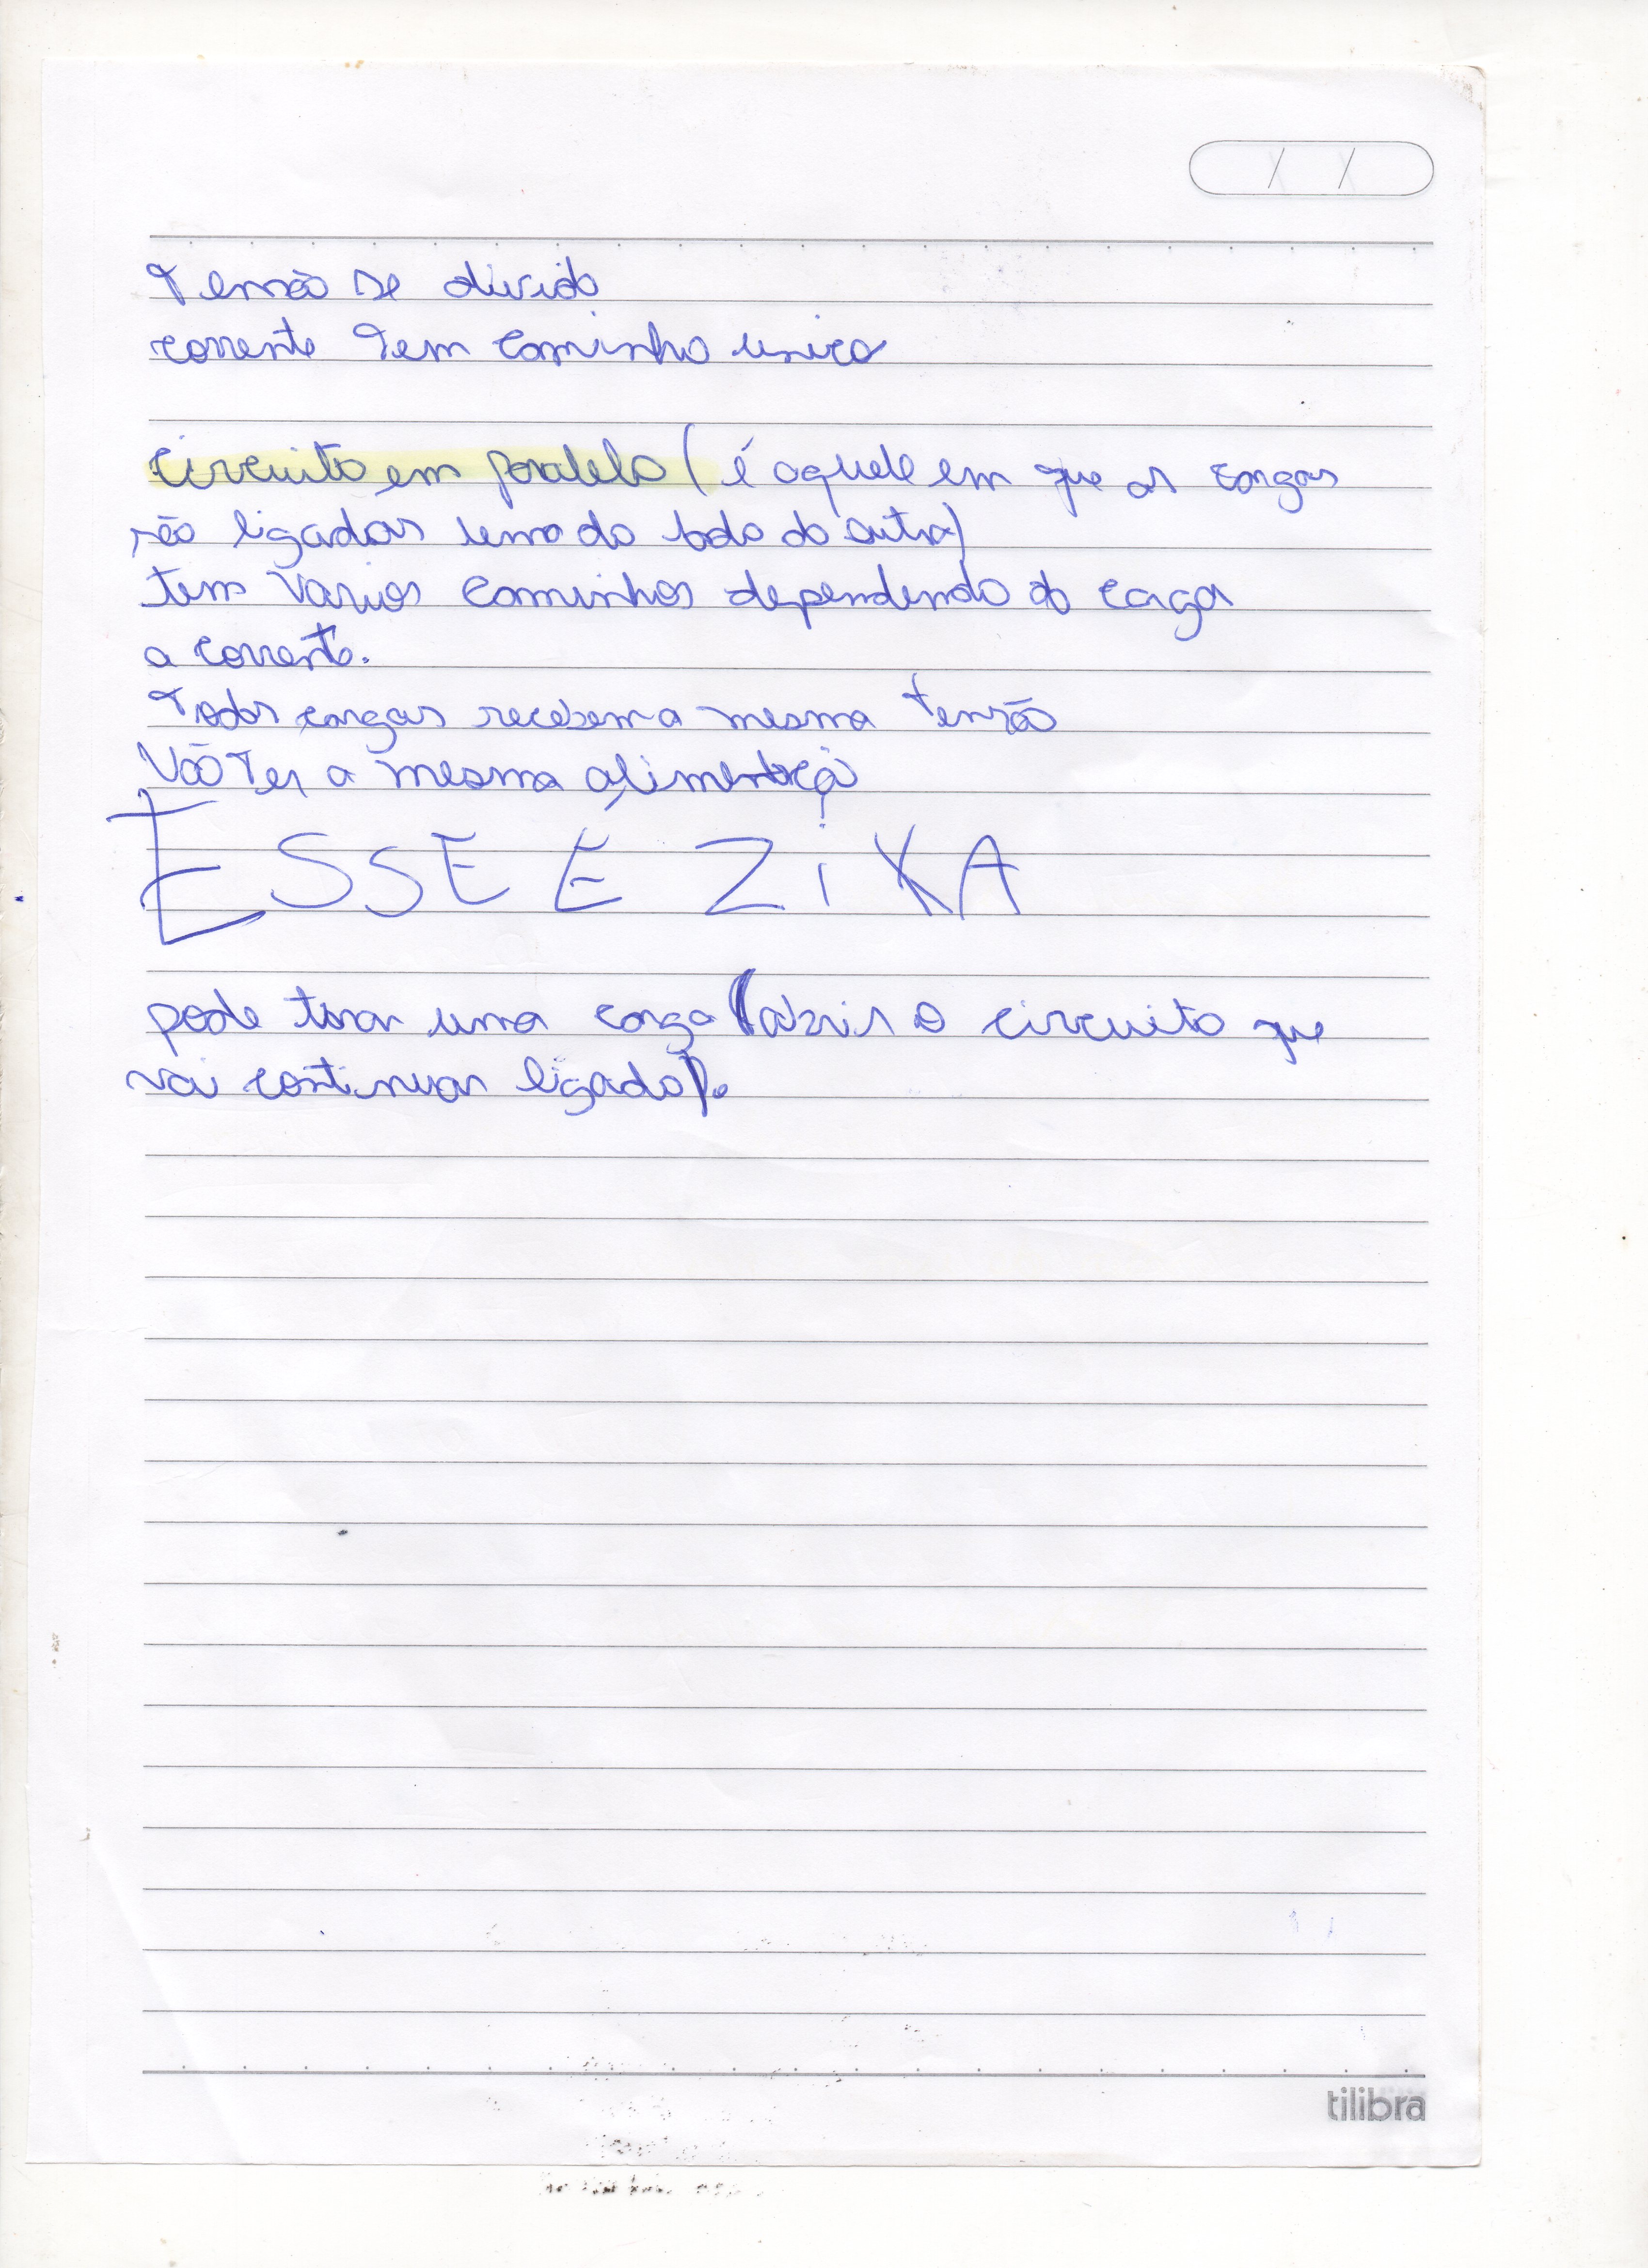 Tensão se divido
corrente tem caminho unico
circuito em paralelo (é aquele em que as cargas
são ligadas uma do lado do outra)
tem varios caminhos dependendo da carga
a corrente.
Todas cargas recebem a mesma tensão
Vão Ter a mesma alimentaçã
ESSE É ZiKA
pode tirar uma carga (abrir o circuito que
vai continuar ligado).
tilibra